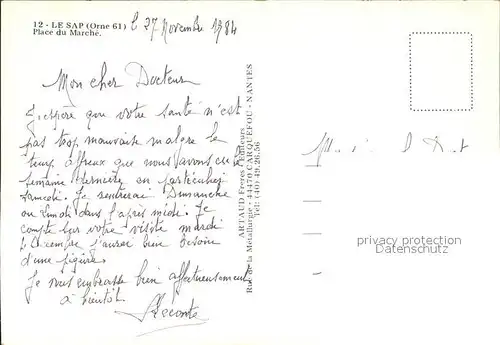 12 - LE SAP (Orne 61)
Place du Marché.
le 27 Novembre 1984
Mon cher Docteur
J'espère que votre santé n'est
pas trop mauvaise malgré le
temps affreux que nous avons eu
semaine dernière en particulier
samedi. Je rentrerai Dimanche
ou Lundi dans l'après midi. Je
compte sur votre visite mardi
j'aurai bien besoin
d'une piqûre.
Je vous embrasse bien affectueusement
à bientôt
Lecomte
ARTAUD Frères / Editeurs
Rue de la Métallurgie - 44470 CARQUEFOU - NANTES
Tél: (40) 49.26.56
privacy protection
watermark